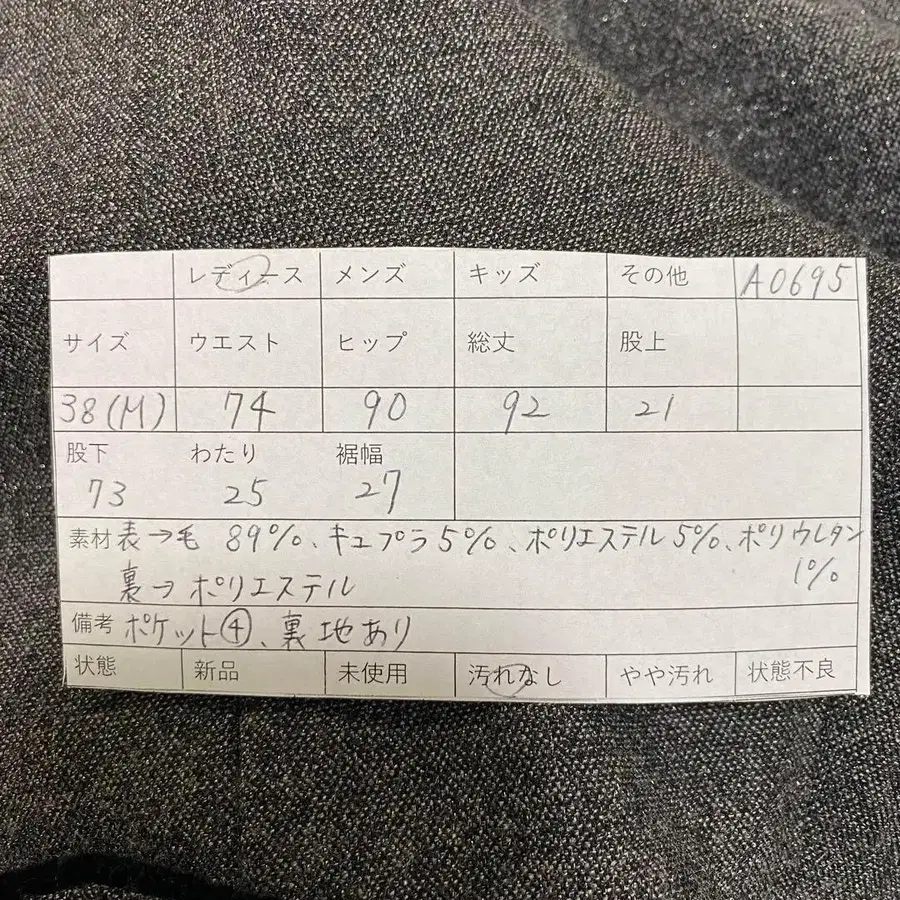 レディース メンズ キッズ その他 A0695
サイズ ウエスト ヒップ 総丈 股上
38(M) 74 90 92 21
股下 わたり 裾幅
73 25 27
素材 表→毛 89%、キュプラ5%、ポリエステル5%、ポリウレタン
1%
裏→ポリエステル
備考 ポケット④、裏地あり
状態 新品 未使用 汚れなし やや汚れ 状態不良